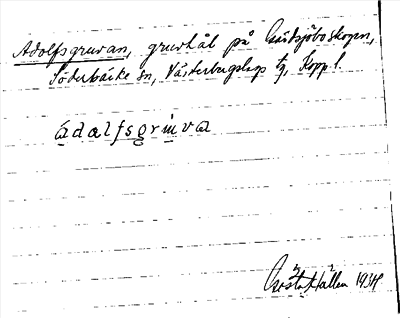 Adolfsgruvan, gruvhål på Gårdsjöboskogen,
Söderbärke sn, Västerbergslags tg, Kopp. l.
adalfsgrinva
Gösta Hallén 1934